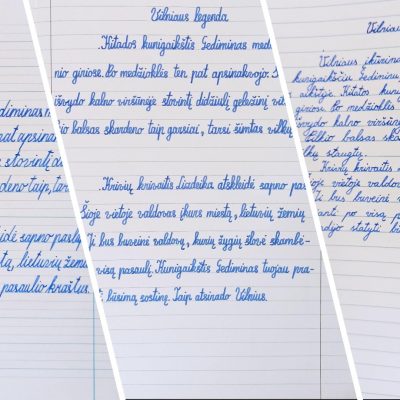 diminas me
pat apsina
stovintį di
deno taip, tar
eidė sapno
tą, lietuvių žem
pasaulio kraštus
Vilniaus legenda
Kitados kunigaikštis Gediminas med
nio giriose. Po medžioklės ten pat apsinakvojo. S
išvydo kalno viršūnėje stovintį didžiulį geležinį vil
io balsas skardeno taip garsiai, tarsi šimtas vilkų
Krivių krivaitis Lizdeika atskleidė sapno pas
Šioje vietoje valdovas įkurs miestą, lietuvių žemių
Ji bus buveinė valdovų, kurių žygių šlovė skambė-
visą pasaulį. Kunigaikštis Gediminas tuojau pra-
būsimą sostinę. Taip atsirado Vilnius.
Vilniau
Vilniaus įkūrima
kunigaikščiu Gediminu,
Kitatos kuni
giriose. Po medžioklės
išvydo kalno viršūn
Vilko balsas ska
vilkų staugtų.
Krivių krivaitis
vietoje valdov
bus buveinė v
po visą p
statyti